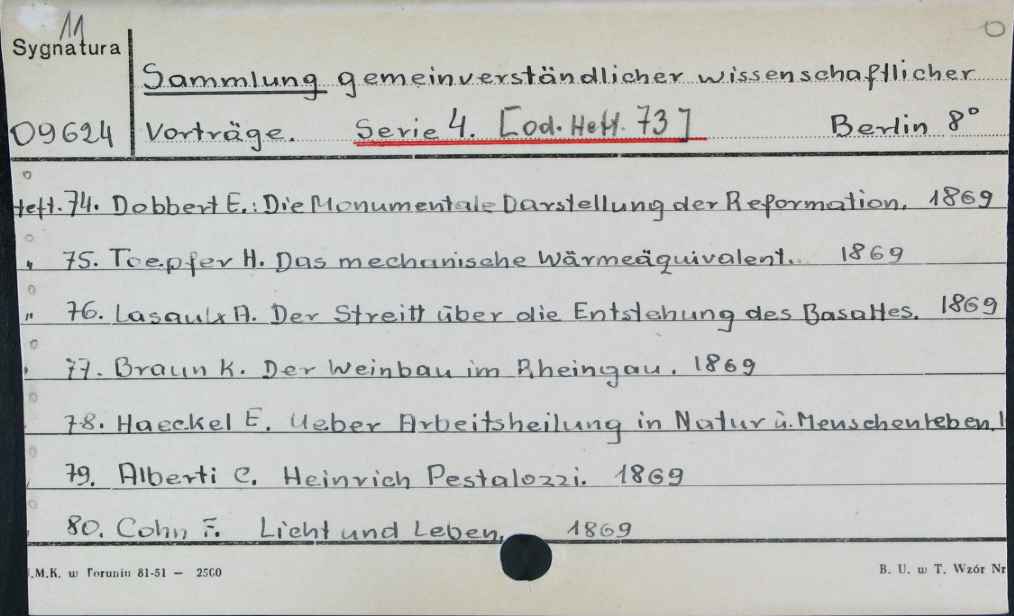 11
Sygnatura
Sammlung gemeinverständlicher wissenschaftlicher
O9624 Vorträge. Serie 4. [od. Heft. 73] Berlin 8°
Heft. 74. Dobbert E.: Die Monumentale Darstellung der Reformation. 1869
" 75. Toepfer H. Das mechanische Wärmeäquivalent. 1869
" 76. Lasaulx A. Der Streitt über die Entstehung des Basaltes. 1869
77. Braun K. Der Weinbau im Rheingau. 1869
78. Haeckel E. Ueber Arbeitsheilung in Natur u. Menschenleben.
79. Alberti C. Heinrich Pestalozzi. 1869
80. Cohn F. Licht und Leben. 1869
.M.K. w Toruniu 81-51 — 2500 B. U. w T. Wzór Nr